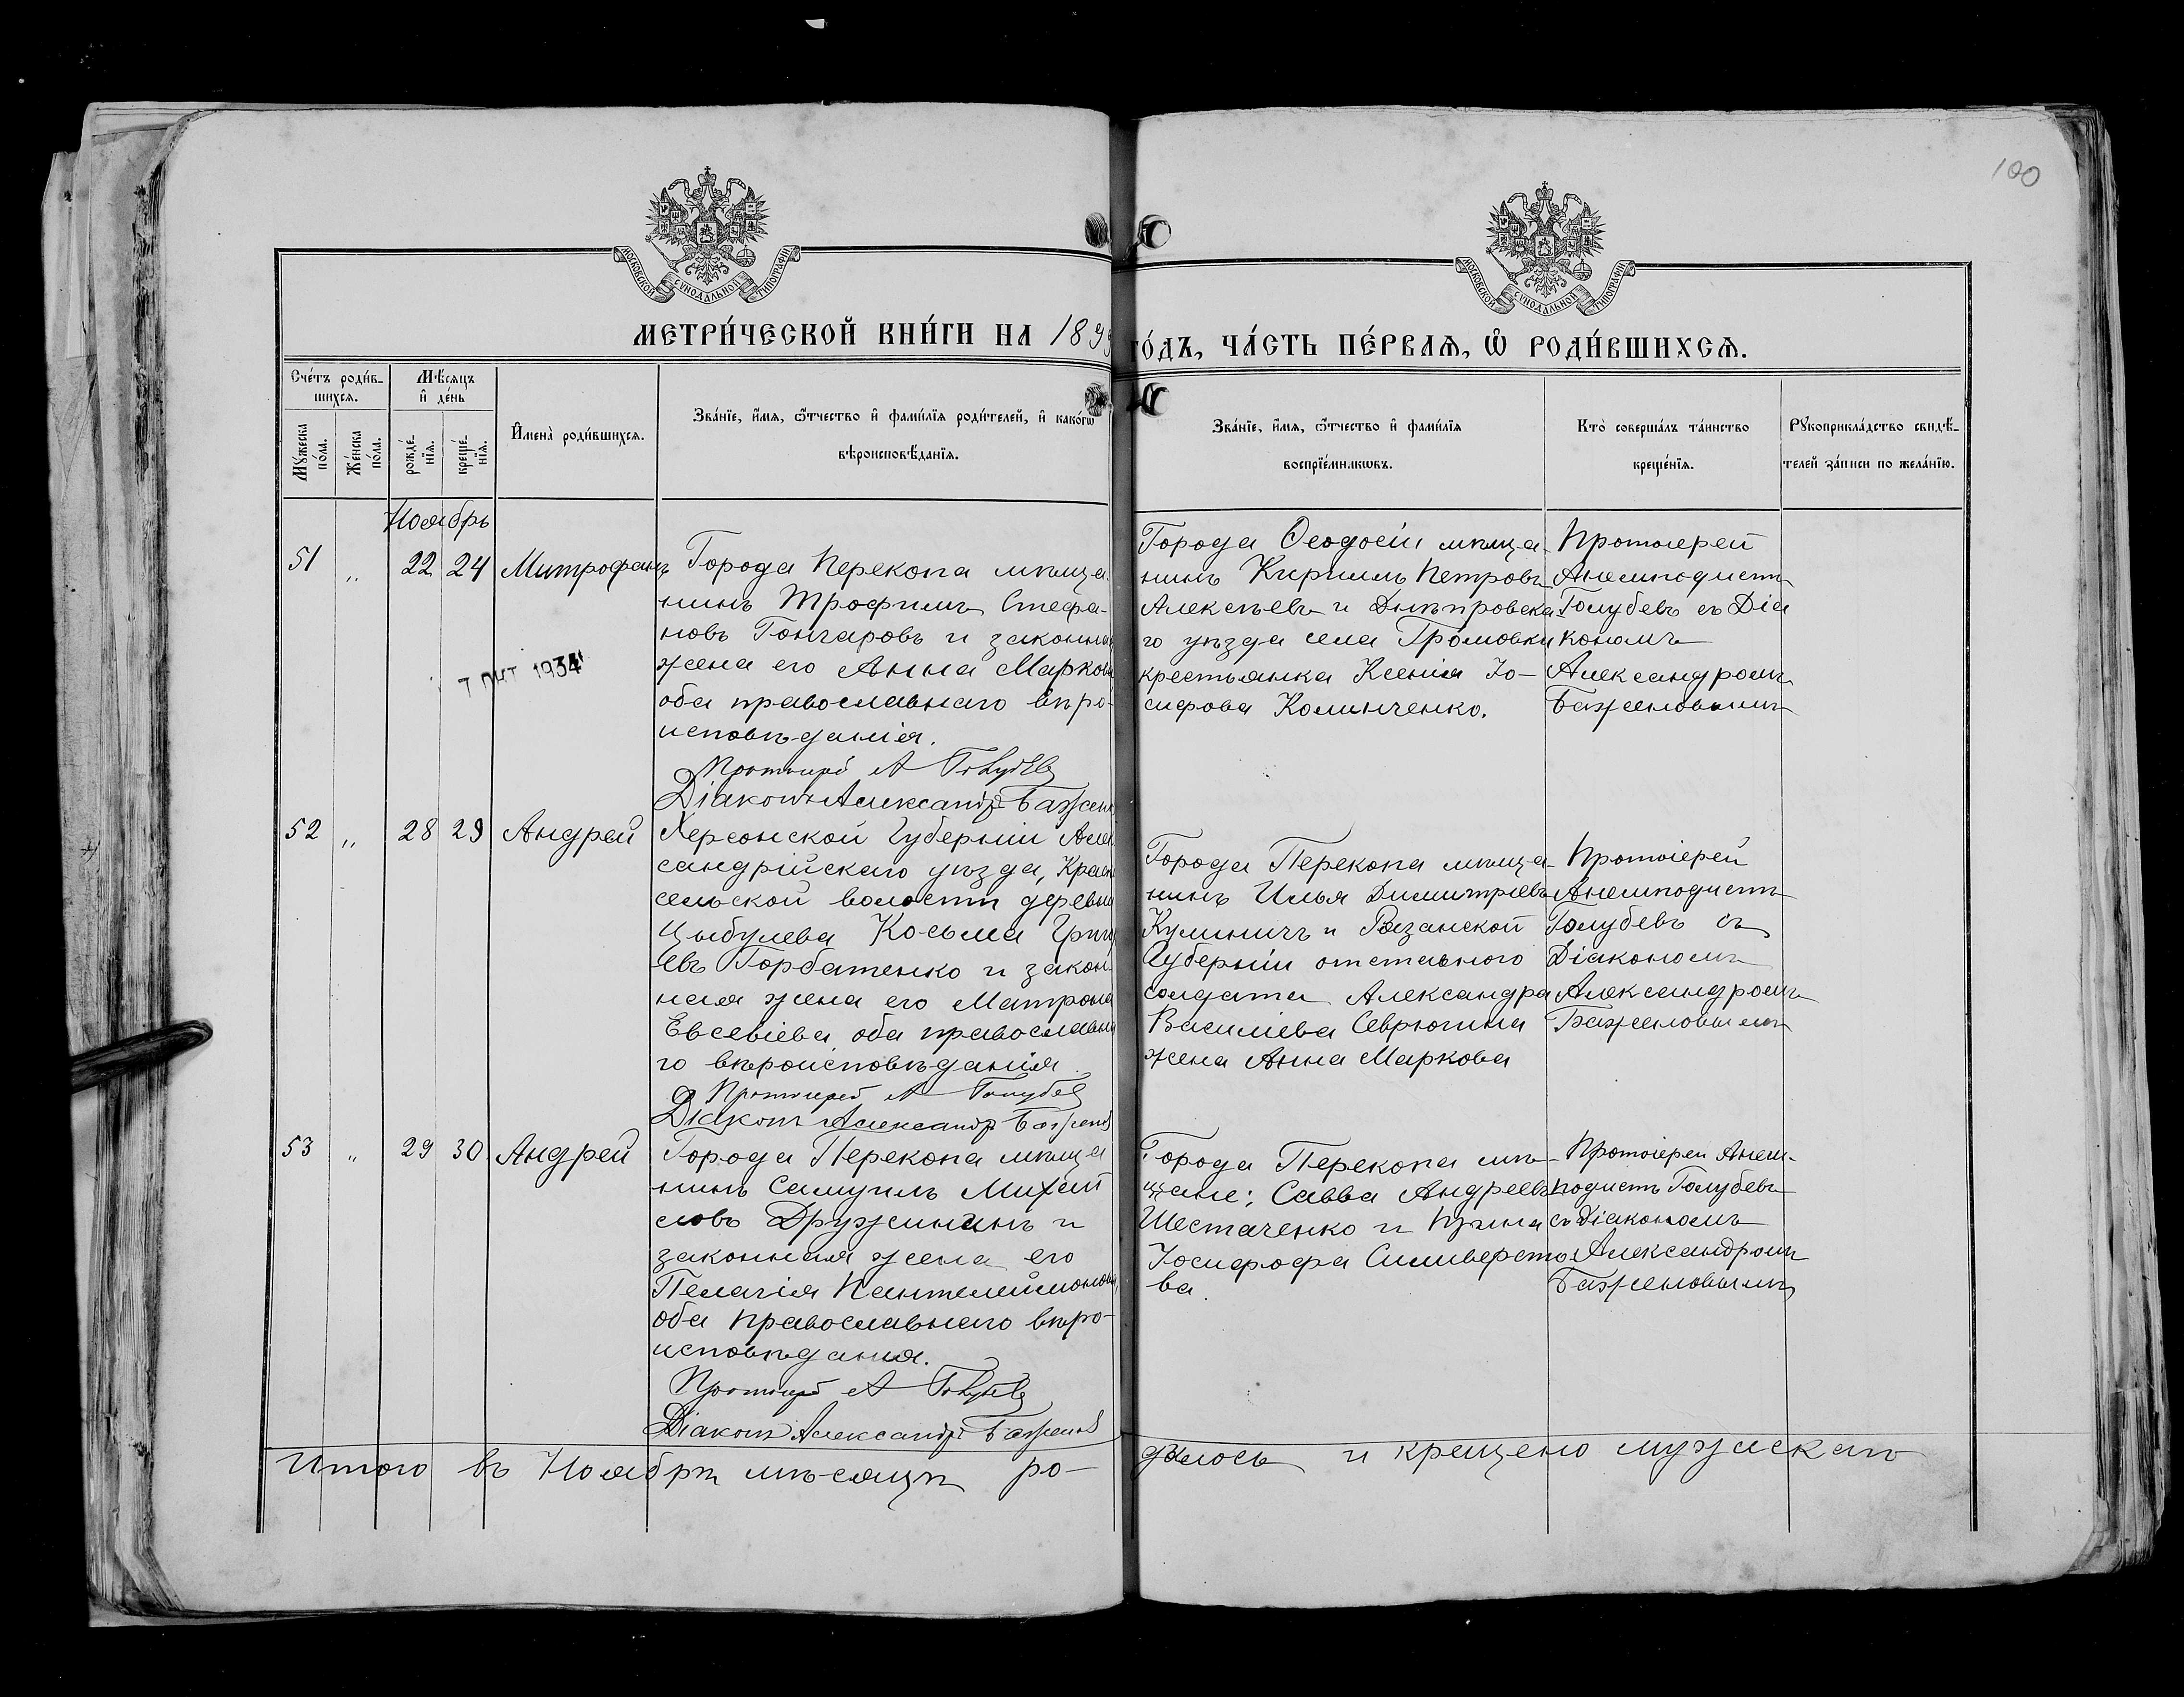 100
МОСКОВСКОЙ СУНОДАЛЬНОЙ ТИПОГРАФІИ
МОСКОВСКОЙ СУНОДАЛЬНОЙ ТИПОГРАФІИ
МЕТРИ́ЧЕСКОЙ КНИ́ГИ НА 1899
ГО́ДЪ, ЧА́СТЬ ПЕ́РВАѦ, Ѡ҆ РОДИ́ВШИХСѦ.
Сче́тъ роди́в-
шихсѧ.
Мꙋ́жеска по́ла.
Же́нска по́ла.
Мѣ́сѧцъ
и҆ де́нь
рожде́-
нїѧ.
креще́-
нїѧ.
И҆мена̀ роди́вшихсѧ.
Зва́нїе, и҆́мѧ, ѻ҆́тчество и҆ фами́лїѧ роди́телей, и҆ како́гѡ
вѣроисповѣ́данїѧ.
Зва́нїе, и҆́мѧ, ѻ҆́тчество и҆ фами́лїѧ
воспрїе́мникѡвъ.
Кто̀ соверша́лъ та́инство
креще́нїѧ.
Рꙋкоприкла́дство свидѣ́-
телей за́писи по жела́нїю.
Ноябрь
51 " 22 24 Митрофанъ
Города Перекопа мѣща-
нинъ Трофимъ Стефа-
новъ Гончаровъ и законная
жена его Анна Маркова
оба православнаго вѣро-
исповѣданія.
Протоіерей А Голубевъ
Діаконъ Александръ Бажен
Города Ѳеодосіи мѣща-
нинъ Кириллъ Петровъ
Алексѣевъ и Днѣпровска
го уѣзда села Громовки
крестьянка Ксенія Іо-
сифова Калинченко.
Протоіерей
Анемподистъ
Голубевъ съ Діа
кономъ
Александромъ
Баженовымъ
7 ОКТ 1934
52 " 28 29 Андрей
Херсонской Губерніи Алек
сандрійскаго уѣзда, Красн
сельской волости деревни
Цыбулева Косьма Григ
евъ Горбатенко и закон-
ная жена его Матрона
Евсевіева, оба православна
го вѣроисповѣданія.
Протоіерей А Голубев
Діаконъ Александръ Баженов
Города Перекопа мѣща-
нинъ Илья Димитріевъ
Кулиничъ и Рязанской
Губерніи отставного
солдата Александра
Василіева Севрюгина
жена Анна Маркова
Протоіерей
Анемподистъ
Голубевъ съ
Діакономъ
Александромъ
Баженовымъ
53 " 29 30 Андрей
Города Перекопа мѣща
нинъ Самуилъ Михай
ловъ Дружининъ и
законная жена его
Пелагія Пантелеймонова,
оба православнаго вѣро-
исповѣданія.
Протоіерей А Голубевъ
Діаконъ Александръ Баженов
Города Перекопа мѣ-
щане: Савва Андреевъ
Шестаченко и Ирина
Іосифофа Сильверсто
ва.
Протоіерей Анем-
подистъ Голубевъ
съ діакономъ
Александромъ
Баженовымъ
Итого въ Ноябрѣ мѣсяцѣ ро-
дилось и крещено мужскаго